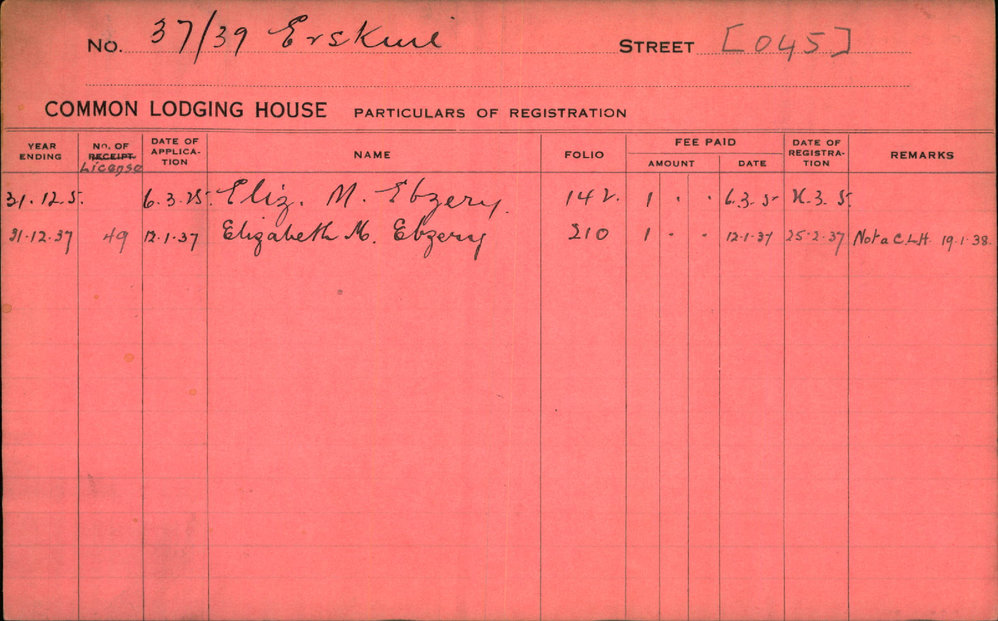 No. 37/39 Erskine STREET [045]
COMMON LODGING HOUSE PARTICULARS OF REGISTRATION
YEAR ENDING No. OF RECEIPT License DATE OF APPLICA- TION NAME FOLIO FEE PAID AMOUNT DATE DATE OF REGISTRA- TION REMARKS
31.12.5. 6.3.25. Eliz. M. Ebzery. 142 1 . . 6.3.5 .3.5.
31.12.37 49 12.1.37 Elizabeth M. Ebzery 210 1 - - 12.1.37 25.2.37 Not a C.L.H. 19.1.38.